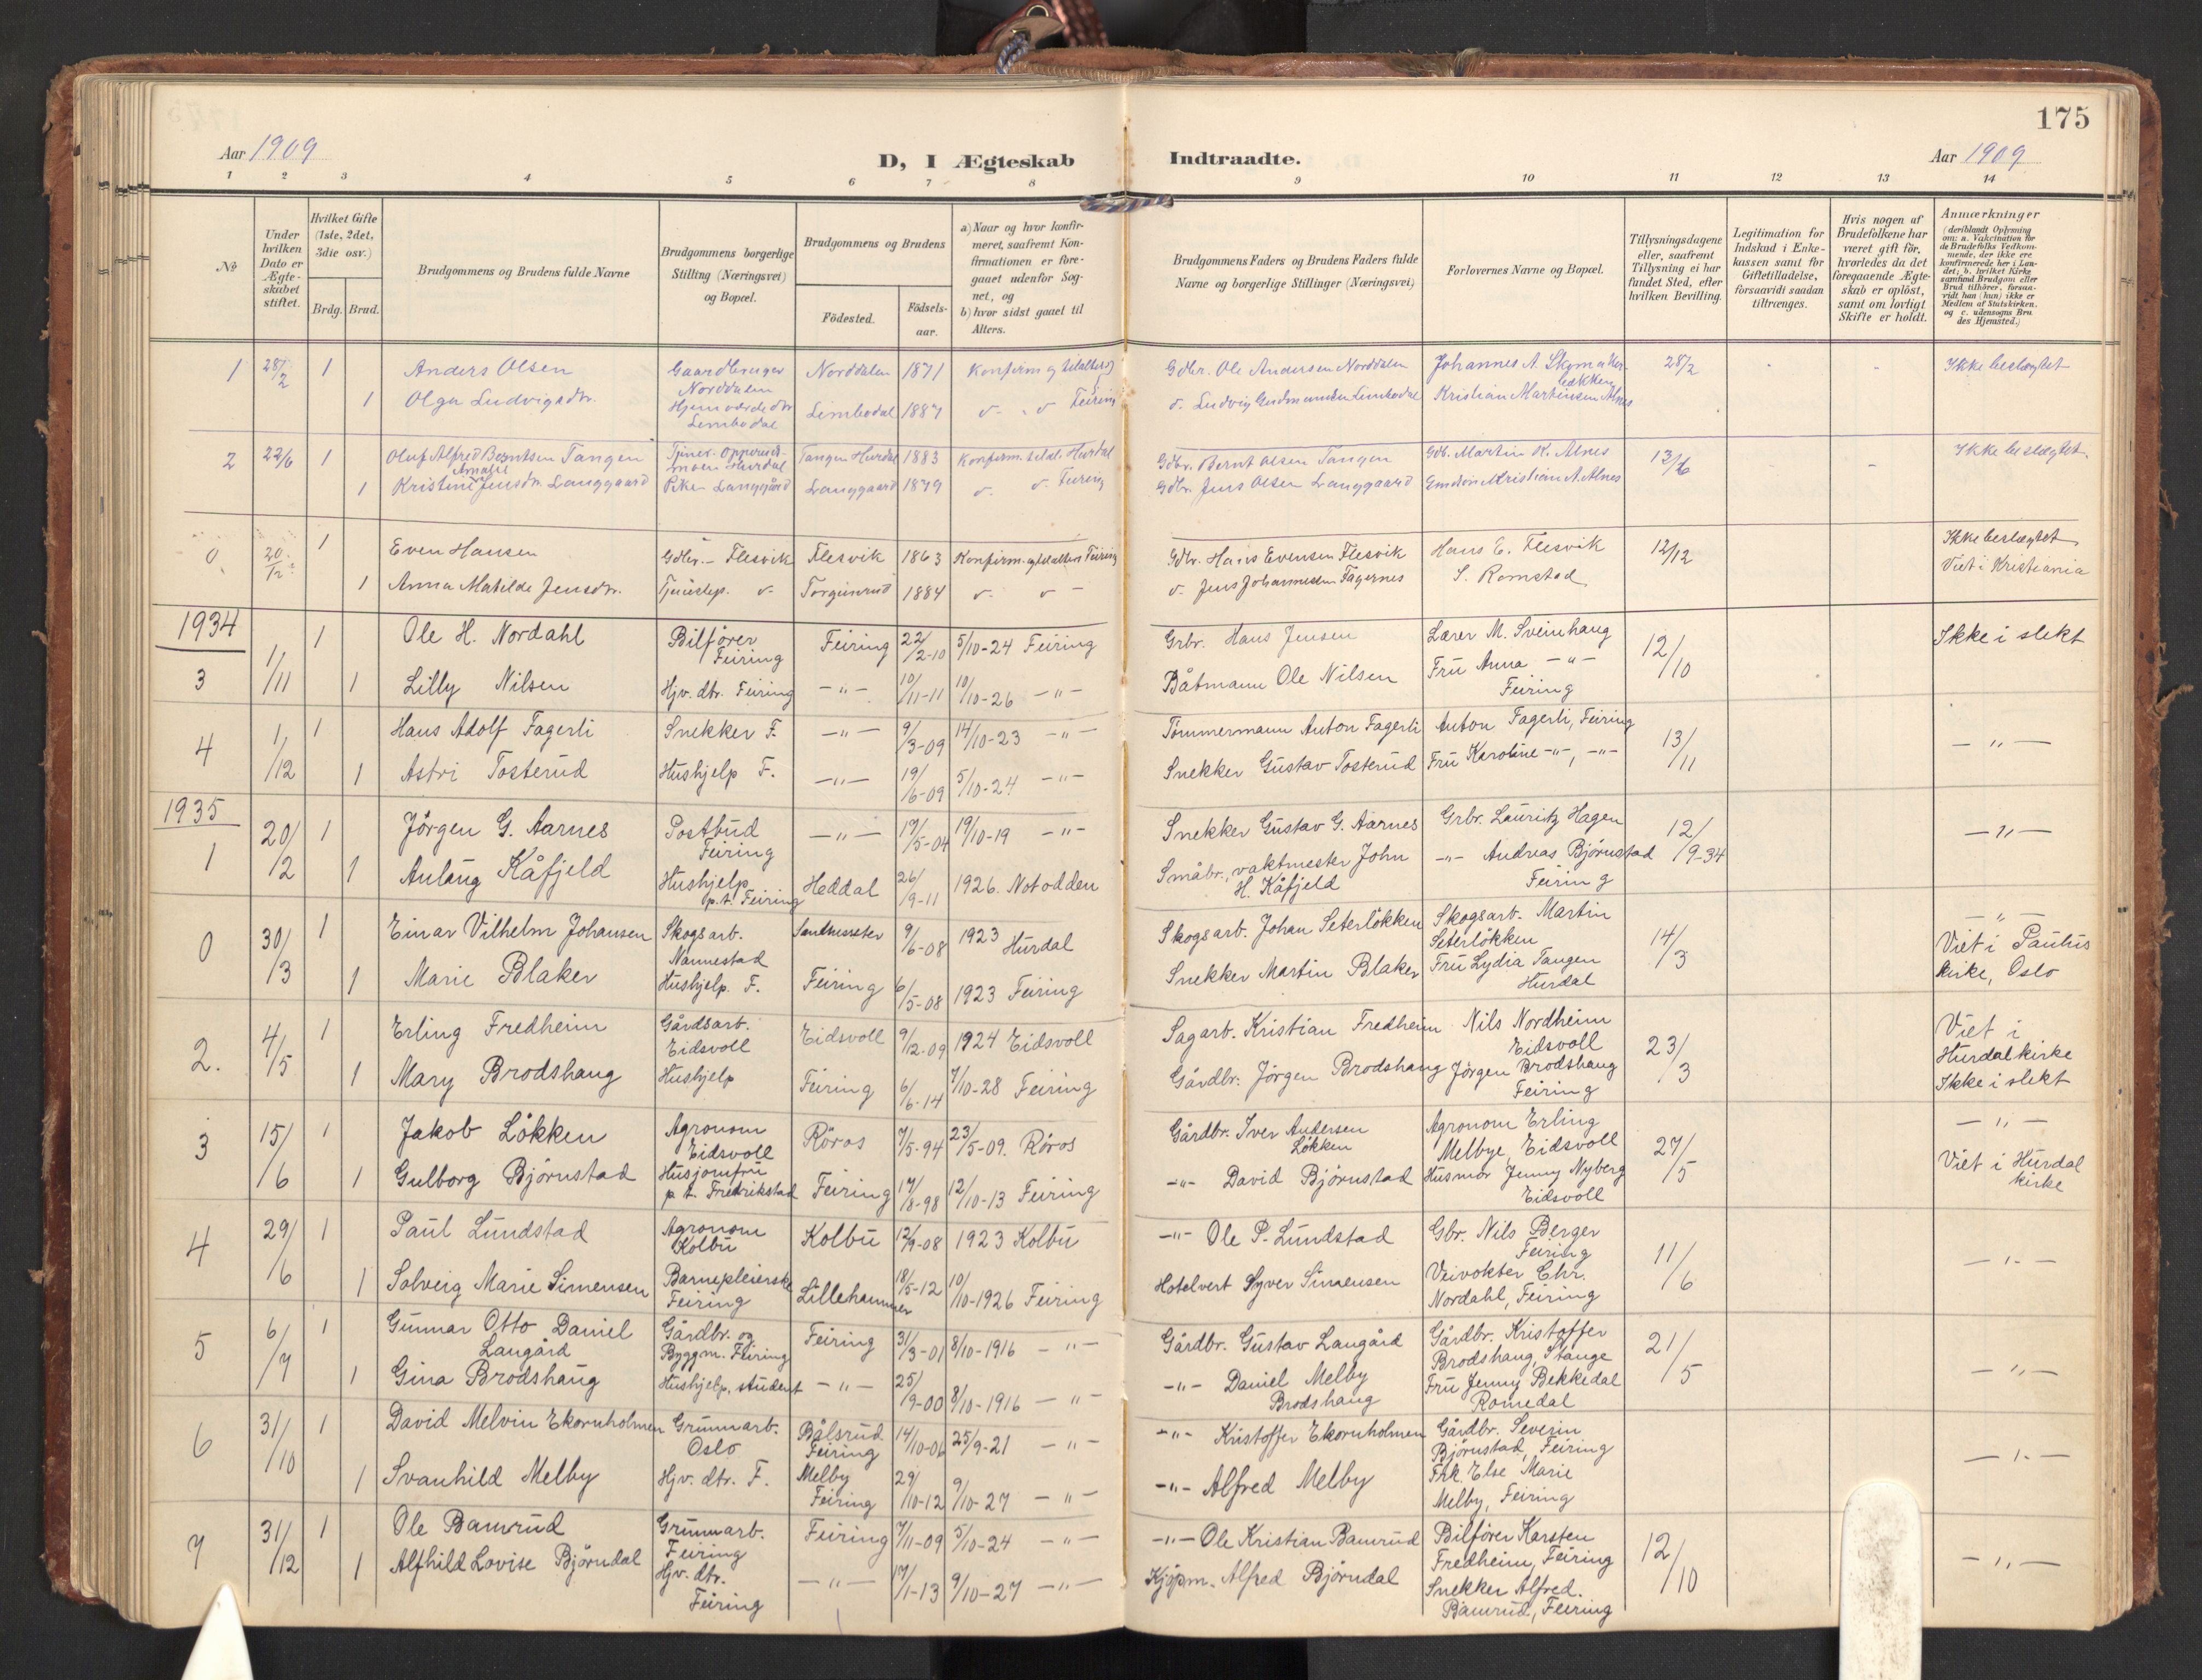 175
Aar 1909
D, I Ægteskab Indtraadte.
Aar 1909
1 2 3 4 5 6 7 8 9 10 11 12 13 14
No
Under hvilken Dato er Ægteskabet stiftet.
Hvilket Gifte (1ste, 2det, 3die osv.)
Brdg. Brud.
Brudgommens og Brudens fulde Navne
Brudgommens borgerlige Stilling (Næringsvei) og Bopæl.
Brudgommens og Brudens
Fødested.
Fødsels-aar.
a) Naar og hvor konfirmeret, saafremt Konfirmationen er foregaaet udenfor Sognet, og
b) hvor sidst gaaet til Alters.
Brudgommens Faders og Brudens Faders fulde Navne og borgerlige Stillinger (Næringsvei)
Forlovernes Navne og Bopæl.
Tillysningsdagene eller, saafremt Tillysning ei har fundet Sted, efter hvilken Bevilling.
Legitimation for Indskud i Enkekassen samt for Giftetilladelse, forsaavidt saadan tiltrænges.
Hvis nogen af Brudefolkene har været gift før, hvorledes da det foregaaende Ægteskab er opløst, samt om lovligt Skifte er holdt.
Anmærkninger
(deriblandt Oplysning om: a. Vakcination for de Brudefolks Vedkommende, der ikke ere konfirmerede her i Landet; b. hvilket Kirkesamfund Brudgom eller Brud tilhører, forsaavidt han (hun) ikke er Medlem af Statskirken, og c. udensogns Brudes Hjemsted.)
1 28/2 1 Anders Olsen Gaardbruger Norddalen Norddalen 1871 Konfirm og til alters Gdbr. Ole Andersen Norddalen Johannes A. 28/2 Ikke beslægtet
1 Olga Ludvigsdtr. Hjemværdedtr Limbodal Limbodal 1887 Feiring Ludvig Gudmundsen Limbodal Kristian Martinsen Alnes
2 22/6 1 Oluf Alfred Berntsen Tangen Hurdal Tangen Hurdal 1883 Konfirm. Hurdal Gdbr. Bernt Olsen Tangen Gdb. Martin K. Alnes 13/6 Ikke beslægtet
1 Kristine Amalie Jensdtr. Langgaard Pike Langgård Langgaard 1879 Feiring Gdbr. Jens Olsen Langgaard Kristian A. Alnes
0 20/12 1 Even Hansen Gdbr. - Flesvik Flesvik 1863 Konfirm. og til alters Feiring Gdbr. Hans Evensen Flesvik Hans E. Flesvik 12/12 Ikke beslægtet
1 Anna Matilde Jensdtr. Tjenestep. Torgunrud 1884 Jens Johannesen Fagernes S. Romstad Viet i Kristiania
1934
3 1/11 1 Ole H. Nordahl Bilfører Feiring Feiring 22/2-10 5/10-24 Feiring Grbr. Hans Jensen Lærer M. Sveinhaug 12/10 Ikke i slekt
1 Lilly Nilsen Hjv. dtr. Feiring -"- 10/11-11 10/10-26 -"- Båtmann Ole Nilsen Fru Anna -"- Feiring
4 1/12 1 Hans Adolf Fagerli Snekker F. -"- 9/3-09 14/10-23 -"- Tømmermann Anton Fagerli Anton Fagerli, Feiring 13/11 -"-
1 Astri Tosterud Hushjelp F. -"- 19/6-09 5/10-24 -"- Snekker Gustav Tosterud Fru Karoline -"-, -"-
1935
1 20/2 1 Jörgen G. Aarnes Postbud Feiring -"- 17/5-04 19/10-19 -"- Snekker Gustav G. Aarnes Grbr. Lauritz Hagen 12/9-34 -"-
1 Anlaug Kåfjeld Hushjelp p.t. Feiring Heddal 26/9-11 1926. Notodden Småbr., vaktmester John H. Kåfjeld -"- Andreas Björnstad Feiring
0 30/3 1 Einar Vilhelm Johansen Skogsarb. Nannestad 9/6-08 1923 Hurdal Skogsarb. Johan Seterlökken Skogsarb. Martin Seterlökken 14/3 -"-
1 Marie Blaker Hushjelp. F. Feiring 6/5-08 1923 Feiring Snekker Martin Blaker Fru Lydia Tangen Hurdal Viet i Paulus kirke, Oslo
2. 4/5 1 Erling Fredheim Gårdsarb. Eidsvoll Eidsvoll 9/12-09 1924 Eidsvoll Sagarb. Kristian Fredheim Nils Nordheim Eidsvoll 23/3 Viet i Hurdal kirke
1 Mary Brodshaug Hushjelp Feiring 6/6-14 7/10-28 Feiring Gårdbr. Jörgen Brodshaug Jörgen Brodshaug Feiring Ikke i slekt
3 15/6 1 Jakob Lökken Agronom Eidsvoll Röros 7/5-94 23/5-09. Röros Gårdbr. Iver Andersen Lökken Agronom Erling Melbye, Eidsvoll 27/5 -"-
1 Gulborg Björnstad Husjomfru p.t. Fredrikstad Feiring 17/8-98 12/10-13 Feiring -"- David Björnstad Husmor Jenny Nyberg Eidsvoll Viet i Hurdal kirke
4 29/6 1 Paul Lundstad Agronom Kolbu Kolbu 12/9-08 1923 Kolbu -"- Ole P. Lundstad Gbr. Nils Berger Feiring 11/6 -"-
1 Solveig Marie Simensen Barnepleierske Feiring Lillehammer 18/5-12 10/10-1926 Feiring Hotelvert Syver Simensen Veivokter Chr. Nordahl, Feiring
5 6/7 1 Gunnar Otto Daniel Langård Gårdbr. og Byggm. Feiring Feiring 31/3-01 8/10-1916 -"- Gårdbr. Gustav Langård Gårdbr. Kristoffer Brodshaug, Stange 21/5 -"-
1 Gina Brodshaug Hushjelp, student -"- 25/9-00 8/10-1916 -"- -"- Daniel Melby Brodshaug Fru Jenny Bekkedal Romedal
6 31/10 1 David Melvin Ekornholmen Grunnarb. Oslo Bålsrud Feiring 14/10-06 25/9-21 -"- -"- Kristoffer Ekornholmen Gårdbr. Severin Björnstad, Feiring -"-
1 Svanhild Melby Hjv. dtr. F. Melby Feiring 29/10-12 9/10-27 -"- -"- Alfred Melby Frk. Else Marie Melby, Feiring
7 31/12 1 Ole Bamrud Grunnarb. Feiring Feiring 7/11-09 5/10-24 -"- -"- Ole Kristian Bamrud Bilfører Karsten Fredheim, Feiring 12/10 -"-
1 Alfhild Lovise Björndal Hjv. dtr. Feiring -"- 17/1-13 9/10-27 -"- Kjöpm. Alfred Björndal Snekker Alfred. Bamrud, Feiring